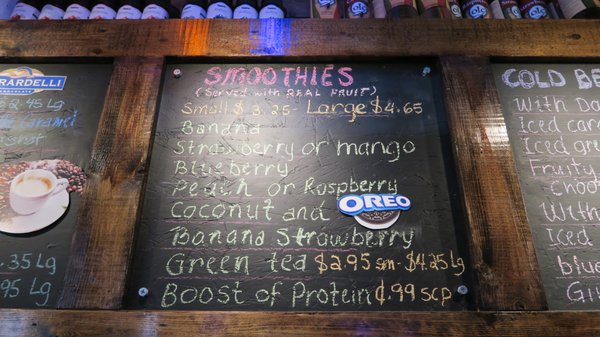 RARDELLI
CHOCOLATE
$2.95 Lg
.35 Lg
.95 Lg
SMOOTHIES
(Served with REAL FRUIT)
Small $3.25 - Large $4.65
Banana
Strawberry or mango
Blueberry
Peach or Raspberry
Coconut and OREO
Banana Strawberry
Green tea $2.95 sm - $4.25 Lg
Boost of Protein ¢.99 scp
COLD BE
With Da
Iced car
Iced gre
Fruity
choc
With
Iced
blue
Gi